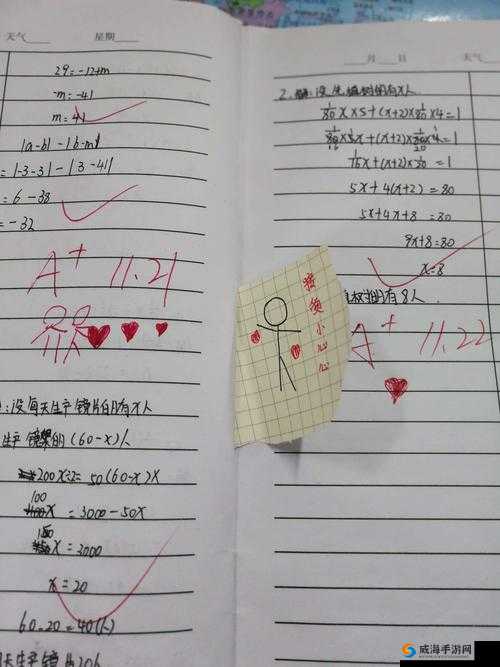 天气 星期
29=-12+m
-m=-41
m=41
|a-b|-|b-m|
=|-3-3|-|3-41|
=6-38
=-32
A+ 11.21
:设每天生产镜片的有x人
生产镜架的(60-x)人
200x÷2=50(60-x)X
100
X=3000-50X
150
X=3000
x=20
60-20=40(人)
月 日 天气
2.解:设先植树的有x人
1/80 X×5+(x+2)×1/80×4=1
1/80×5X+(x+2)×1/80×4=1
16 20
1/16X+(x+2)×1/20=1
5x+4(x+2)=80
5x+4x+8=80
9x+8=80
x=8
植树的有8人.
A+ 11.22
小心心
威海手游网